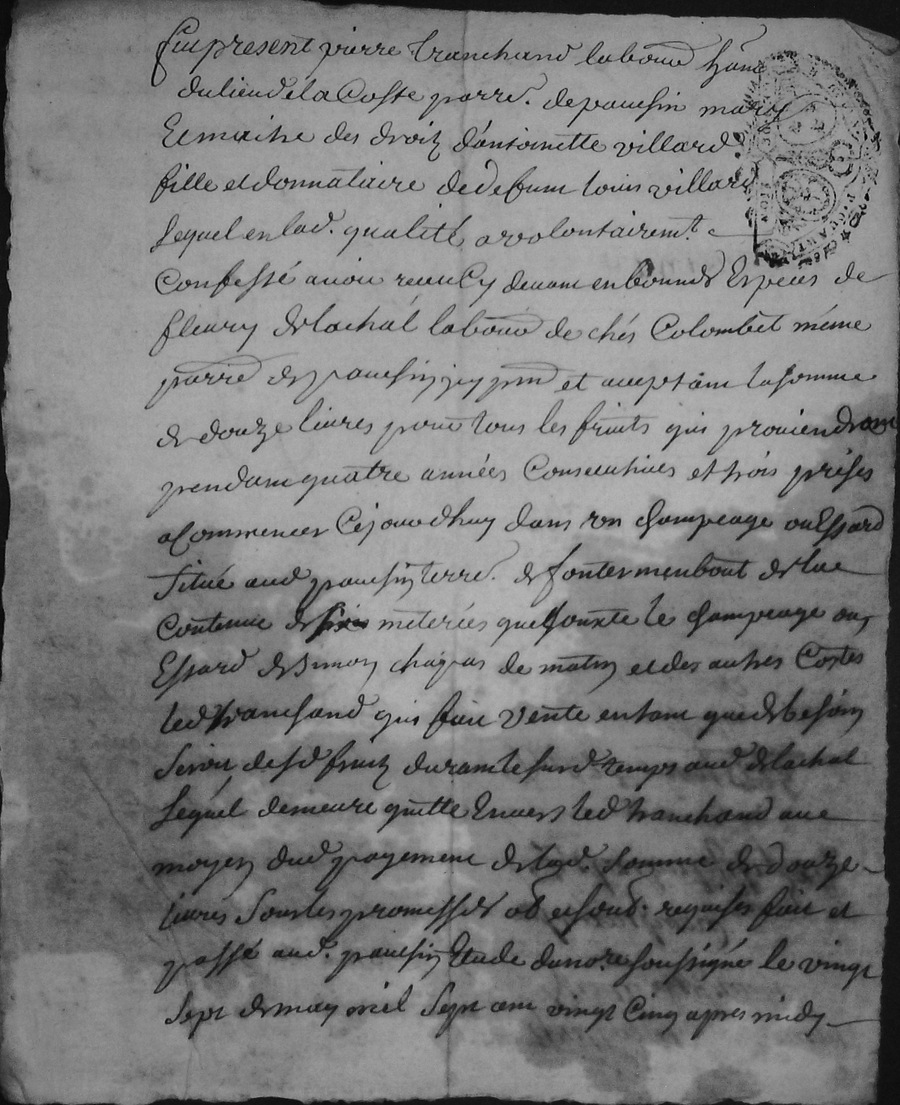 fut present pierre tranchand labour hane
du lieu de la Coste parre. de pauesin mary
Et maitre des droitz d'antoinette villard
fille et donnataire de defunt louis villard
Lequel en lad. qualité a volontairemt.
Confessé auoir receu Cy deuant en bonnes Especes de
fleury delachal labour de chés Colombet méme
parre de pauesin icy pnt et aceptant la somme
de douze liures pour tous les fruits qui prouiendront
pendant quatre années Consecutiues et trois prises
a Commencer Cejourdhuy dans un Champeage ou Essard
Situé aud pauesin terre. de fontermenbout de la
Contenue de meterées que Jouxte le Champeage ou
Essard de Simon chapas de matin et des autres Costes
led tranchand qui fait Vente entant que de besoin
Seroit desd fruitz durant le susd temps aud delachal
Lequel demeure quitte Enuers led tranchand au
moyen dud payement de lad. somme de douze
liures Sous les promesses ob et soub. requises fait et
passé aud. pauesin Etude du nore soussigné le vingt
Sept de may mil Sept cent vingt Cinq apres midy